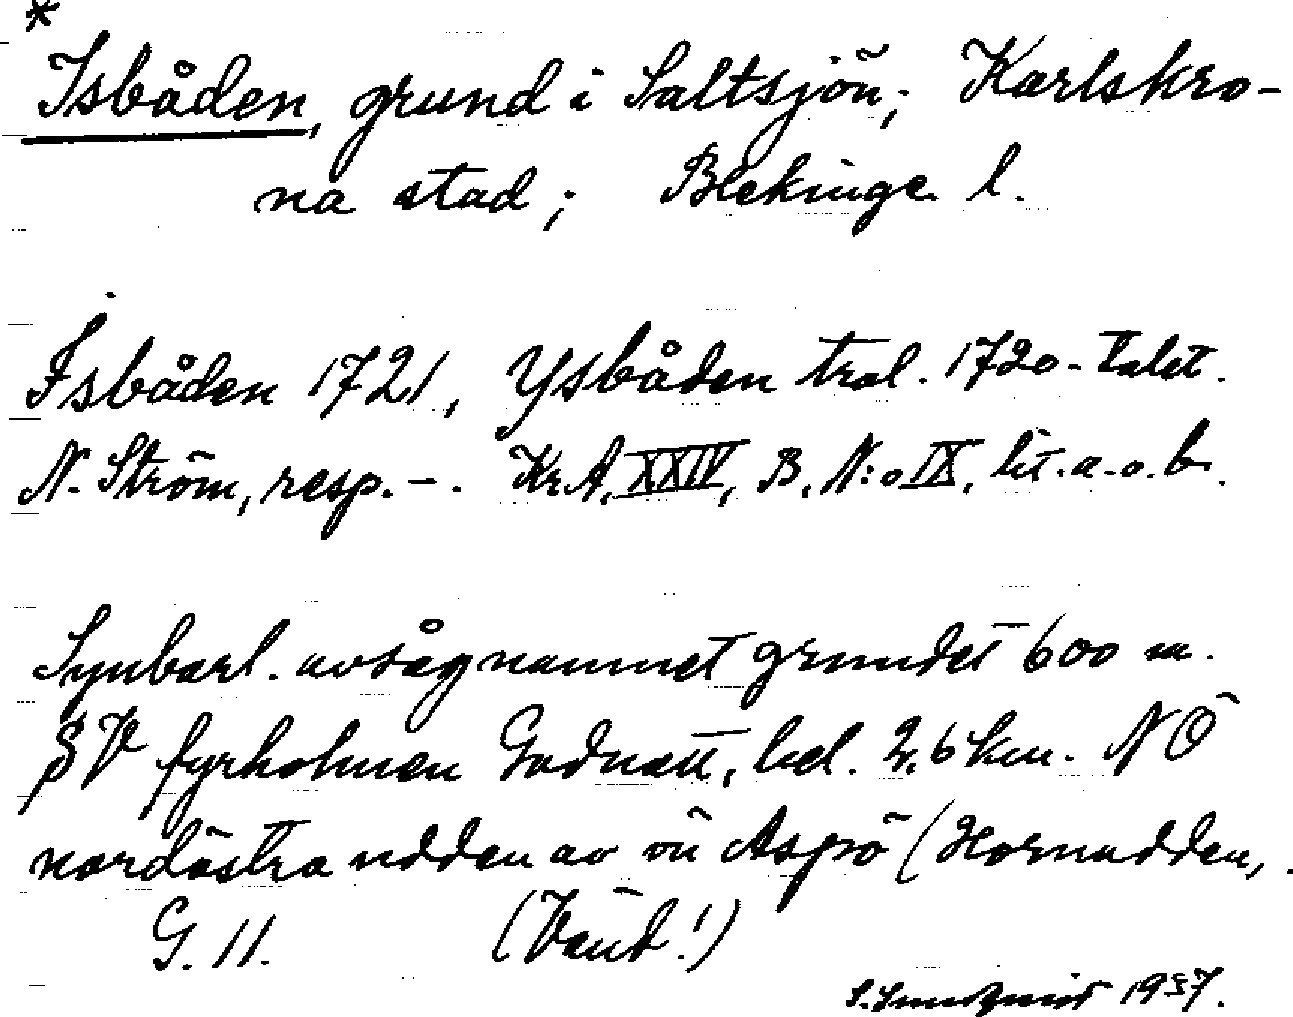 *
Isbåden, grund i Saltsjön; Karlskro-
na stad; Blekinge l.
Isbåden 1721, Ysbåden trol. 1720-talet.
N. Ström, resp. -. Kr.A. XXIV, B, N:o IX, lit. a. o. b.
Synbarl. avsåg namnet grundet 600 m.
SV fyrholmen Godnatt, bel. 2,6 km. NÖ
nordöstra udden av ön Aspö (Hornudden,
G. 11. (Vänd!)
1937.